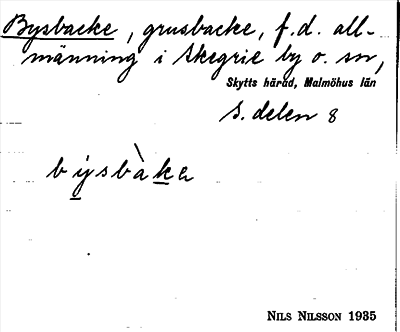 Bysbacke, grusbacke, f.d. all-
männing i Skegrie by o. sn,
Skytts härad, Malmöhus län
S. delen 8
bysbàke
NILS NILSSON 1935